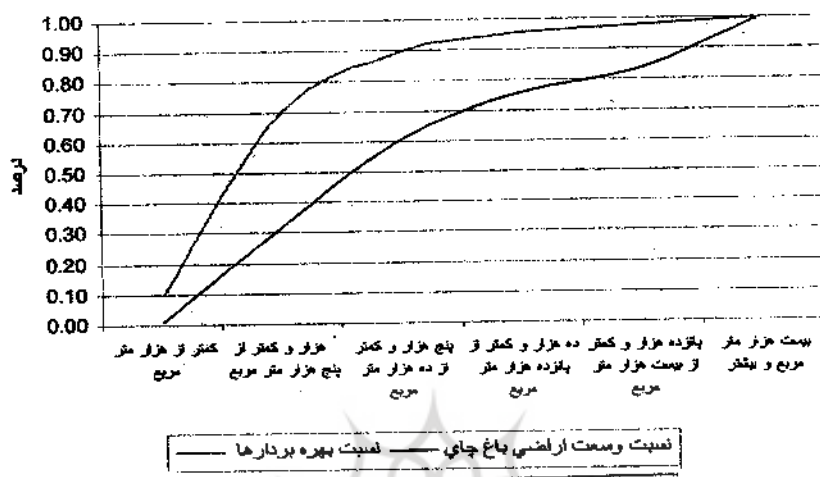 1.00
0.90
0.80
0.70
0.60
0.50
0.40
0.30
0.20
0.10
0.00
درصد
کمتر از هزار متر
مربع
هزار و کمتر از
پنج هزار متر مربع
پنج هزار و کمتر
از ده هزار متر
مربع
ده هزار و کمتر از
پانزده هزار متر
مربع
پانزده هزار و کمتر
از بیست هزار متر
مربع
بیست هزار متر
مربع و بیشتر
نسبت وسعت اراضي باغ چاي
نسبت بهره بردارها